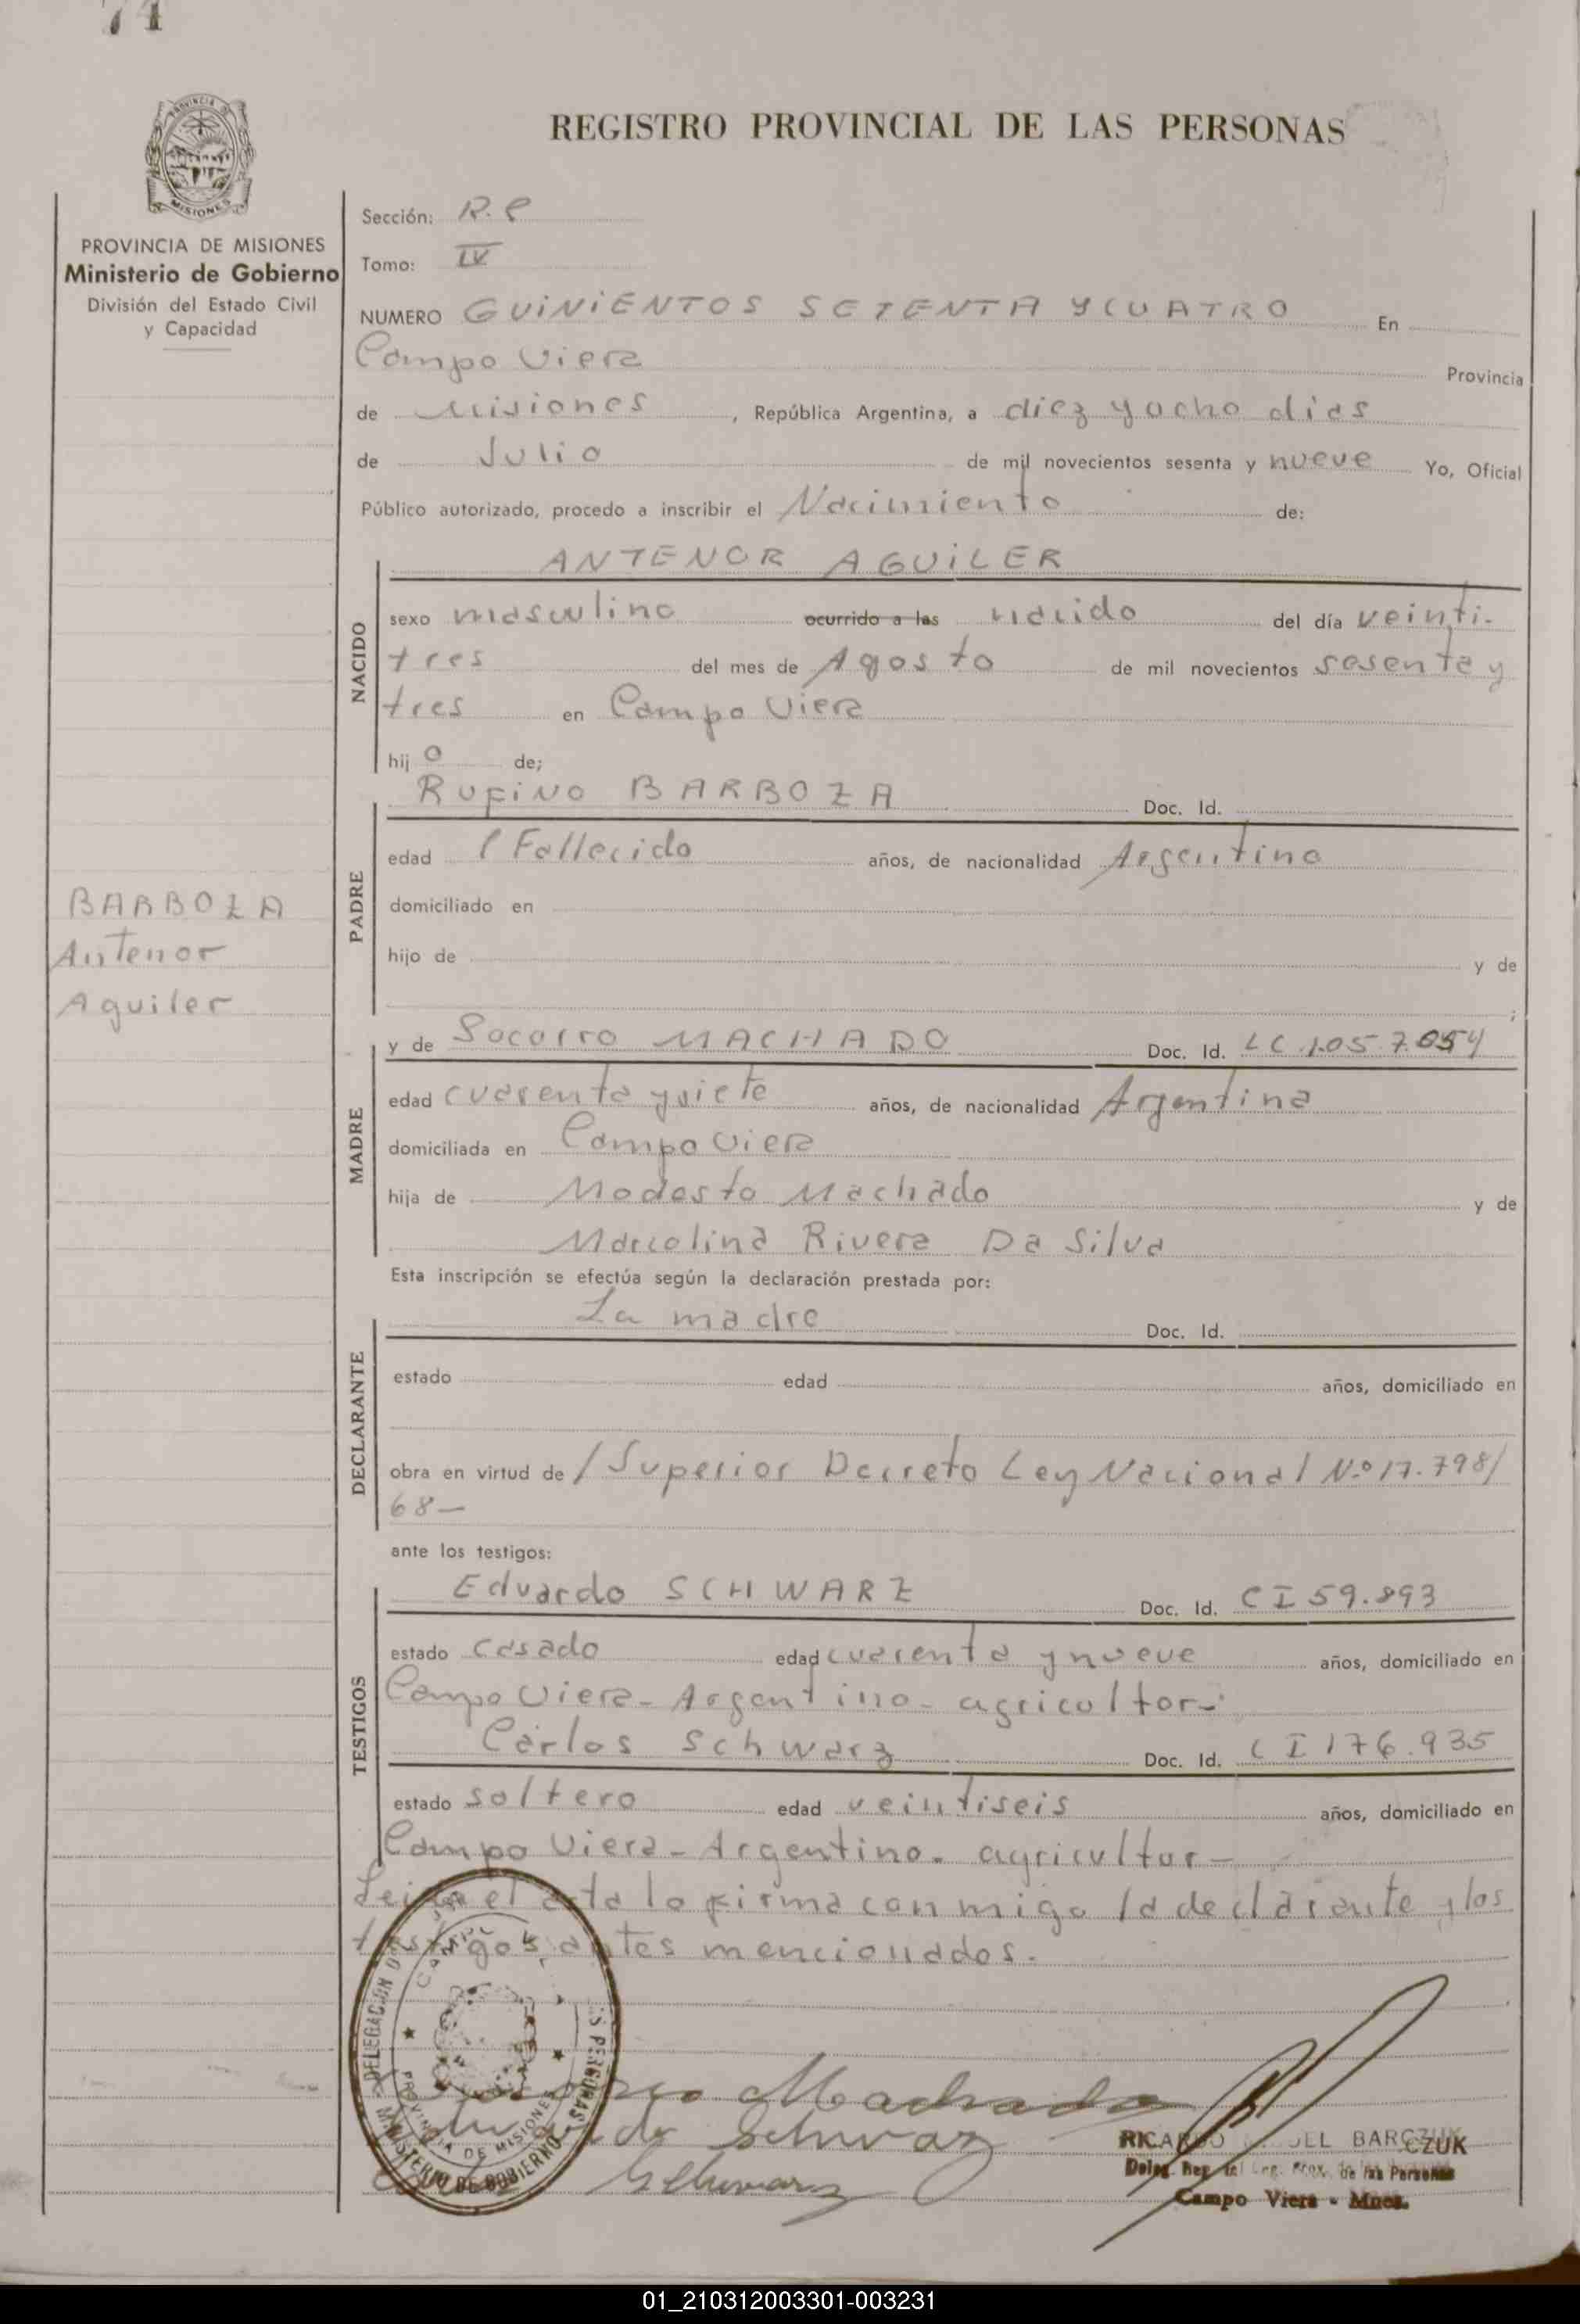 74
REGISTRO PROVINCIAL DE LAS PERSONAS
PROVINCIA DE MISIONES
Ministerio de Gobierno
División del Estado Civil
y Capacidad
Sección: R.C
Tomo: IV
NUMERO GUINIENTOS SETENTA Y CUATRO En
Campo Viera Provincia
de Misiones, República Argentina, a diez y ocho dias
de Julio de mil novecientos sesenta y nueve Yo, Oficial
Público autorizado, procedo a inscribir el Nacimiento de:
ANTENOR AGUILER
NACIDO
sexo masculino ocurrido a las nacido del día veinti-
tres del mes de Agosto de mil novecientos sesenta y
tres en Campo Viera
hij o de;
Rufino BARBOZA Doc. Id.
PADRE
edad (Fallecido años, de nacionalidad Argentino
domiciliado en
hijo de y de
;
BARBOZA
Antenor
Aguiler
y de Socorro MACHADO Doc. Id. LC 1.057.054
MADRE
edad cuarenta y siete años, de nacionalidad Argentina
domiciliada en Campo Viera
hija de Modesto Machado y de
Marcolina Rivera Da Silva
Esta inscripción se efectúa según la declaración prestada por:
La madre Doc. Id.
DECLARANTE
estado edad años, domiciliado en
obra en virtud de / Superior Decreto Ley Nacional N.º 17.798/
68-
ante los testigos:
Eduardo SCHWARZ Doc. Id. CI 59.893
TESTIGOS
estado casado edad cuarenta y nueve años, domiciliado en
Campo Viera - Argentino - agricultor -
Carlos Schwarz Doc. Id. CI 176.935
estado soltero edad veintiseis años, domiciliado en
Campo Viera - Argentino - agricultor -
Leida el acta la firma con migo la declarante y los
testigos antes mencionados.
DELEGACION
PERSONAS
PROVINCIA DE MISIONES
MINISTERIO DE GOBIERNO
Machado
Schwarz
Schwarz
RICARDO BARCZUK
Deleg. de las Personas
Campo Viera - Mnes.
01_210312003301-003231